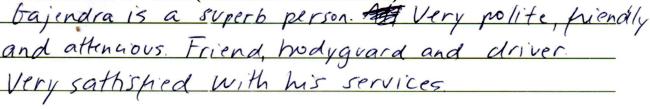 Gajendra is a superb person. Very polite, friendly
and attencious. Friend, bodyguard and driver.
Very sathisfied with his services